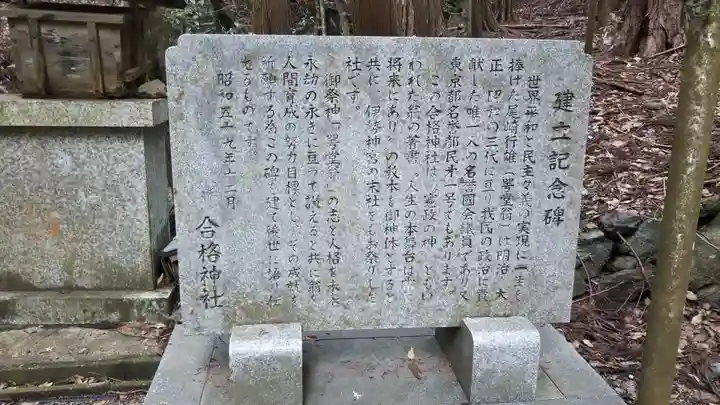 建立記念碑
世界平和と民主々義の実現に一生を
捧げた尾崎行雄(咢堂翁)は明治、大
正、昭和の三代に亘り我民の政治に貢
献した唯一人の名誉國会議員であり又
東京都名誉都民第一号でもあります。
この合格神社は、憲政の神、ともい
われた翁の著書、人生の本舞台は常に
将来にあり、の教本を御神体とすると
共に、伊勢神宮の末社をもお祭りした
社です。
御祭神「咢堂翁」の志と人格を末
永劫の永きに亘って讃えると共に翁
人間育成の努力目標とし、その成就を
祈願する為この碑を建て後世に
するものです。
昭和五十九年十二月
合格神社